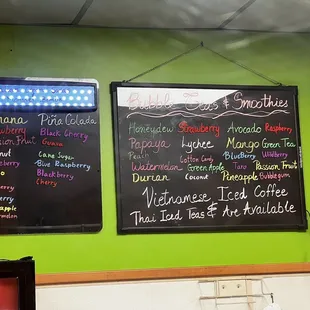 nana Piña Colada
wberry Black Cherry
ssion Fruit Guava
nut Cane Sugar
rry Blue Raspberry
Blackberry
erry Cherry
rry
apple
rmelon
Bubble Teas & Smoothies
Honeydew Strawberry Avocado Raspberry
Papaya Lychee Mango Green Tea
Peach Cotton Candy Blueberry Wildberry
Watermelon Green Apple Taro Passion Fruit
Durian Coconut Pineapple Bubblegum
Vietnamese Iced Coffee
Thai Iced Teas & Are Available